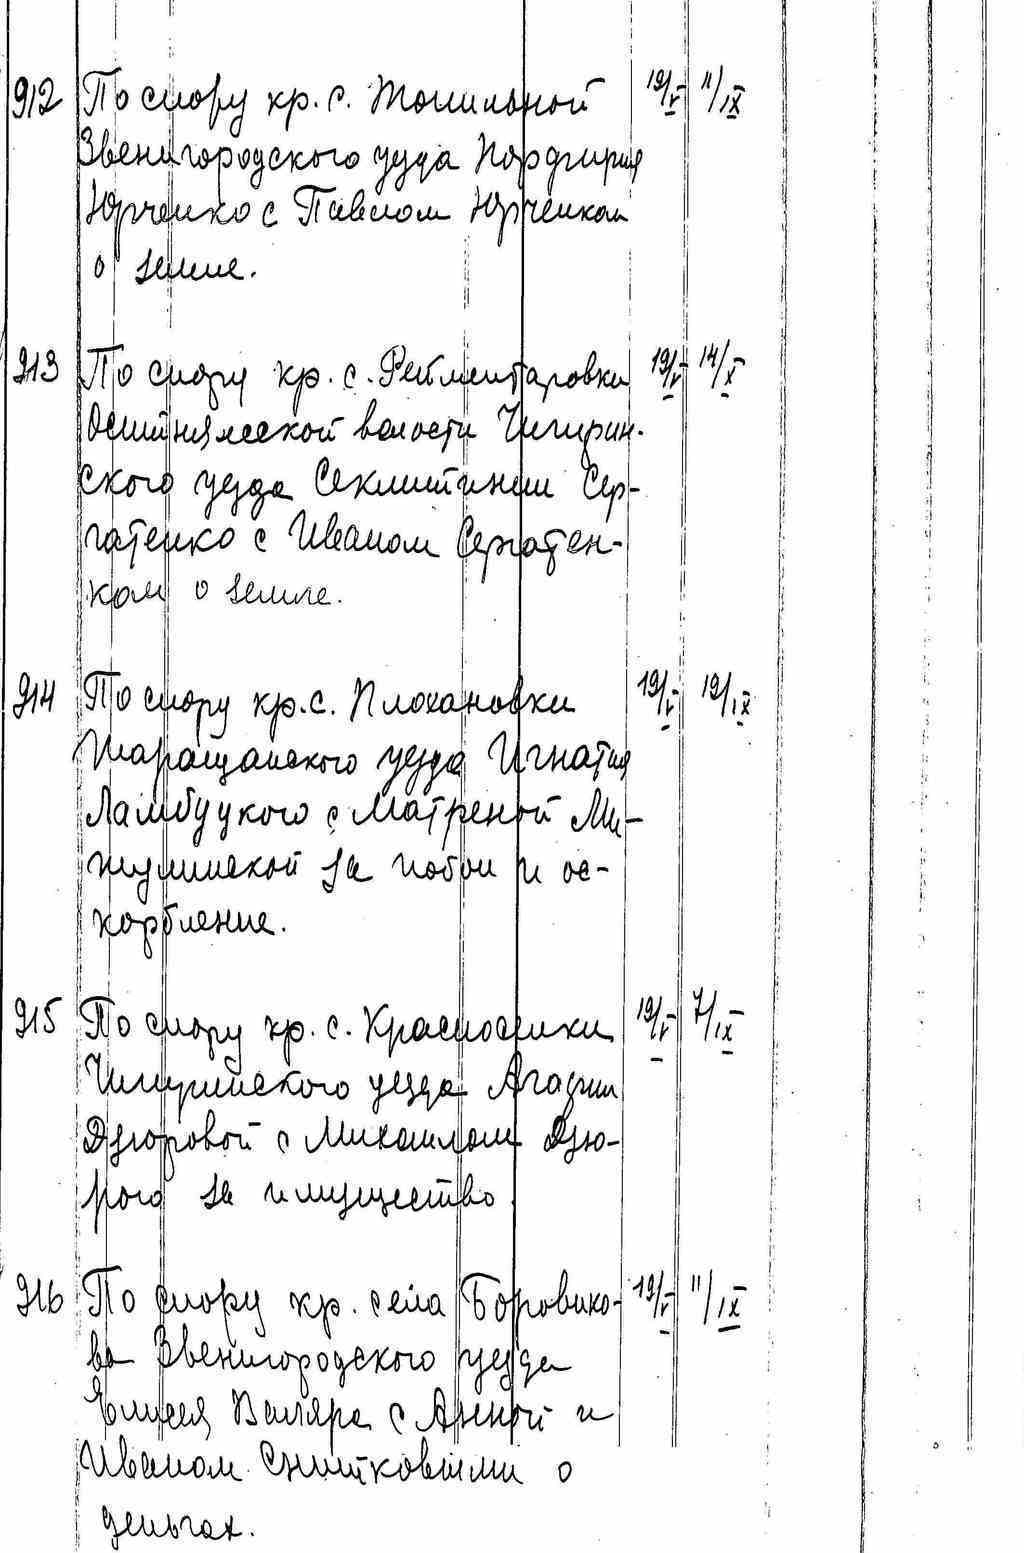 912 По спору кр. с. Топильной 19/V 11/IX
Звенигородского уезда Порфирия
Юрченко с Павлом Юрченком
о земле.
913 По спору кр. с. Рейментаровки 19/V 14/X
Оситняжской волости Чигирин-
ского уезда Секлитинии Сер-
гатенко с Иваном Сергатен-
ком о земле.
914 По спору кр. с. Плохановки 19/V 19/IX
Таращанского уезда Игнатия
Ламбуцкого с Матреной Ми-
жулинской за побои и ос-
корбление.
915 По спору кр. с. Красноселки 19/V 7/IX
Чигиринского уезда Агафии
Дзюровой с Михаилом Дзю-
рою за имущество.
916 По спору кр. села Боровико- 19/V 11/IX
ва Звенигородского уезда
Елисея Валяра с Анной и
Иваном Снитковыми о
деньгах.